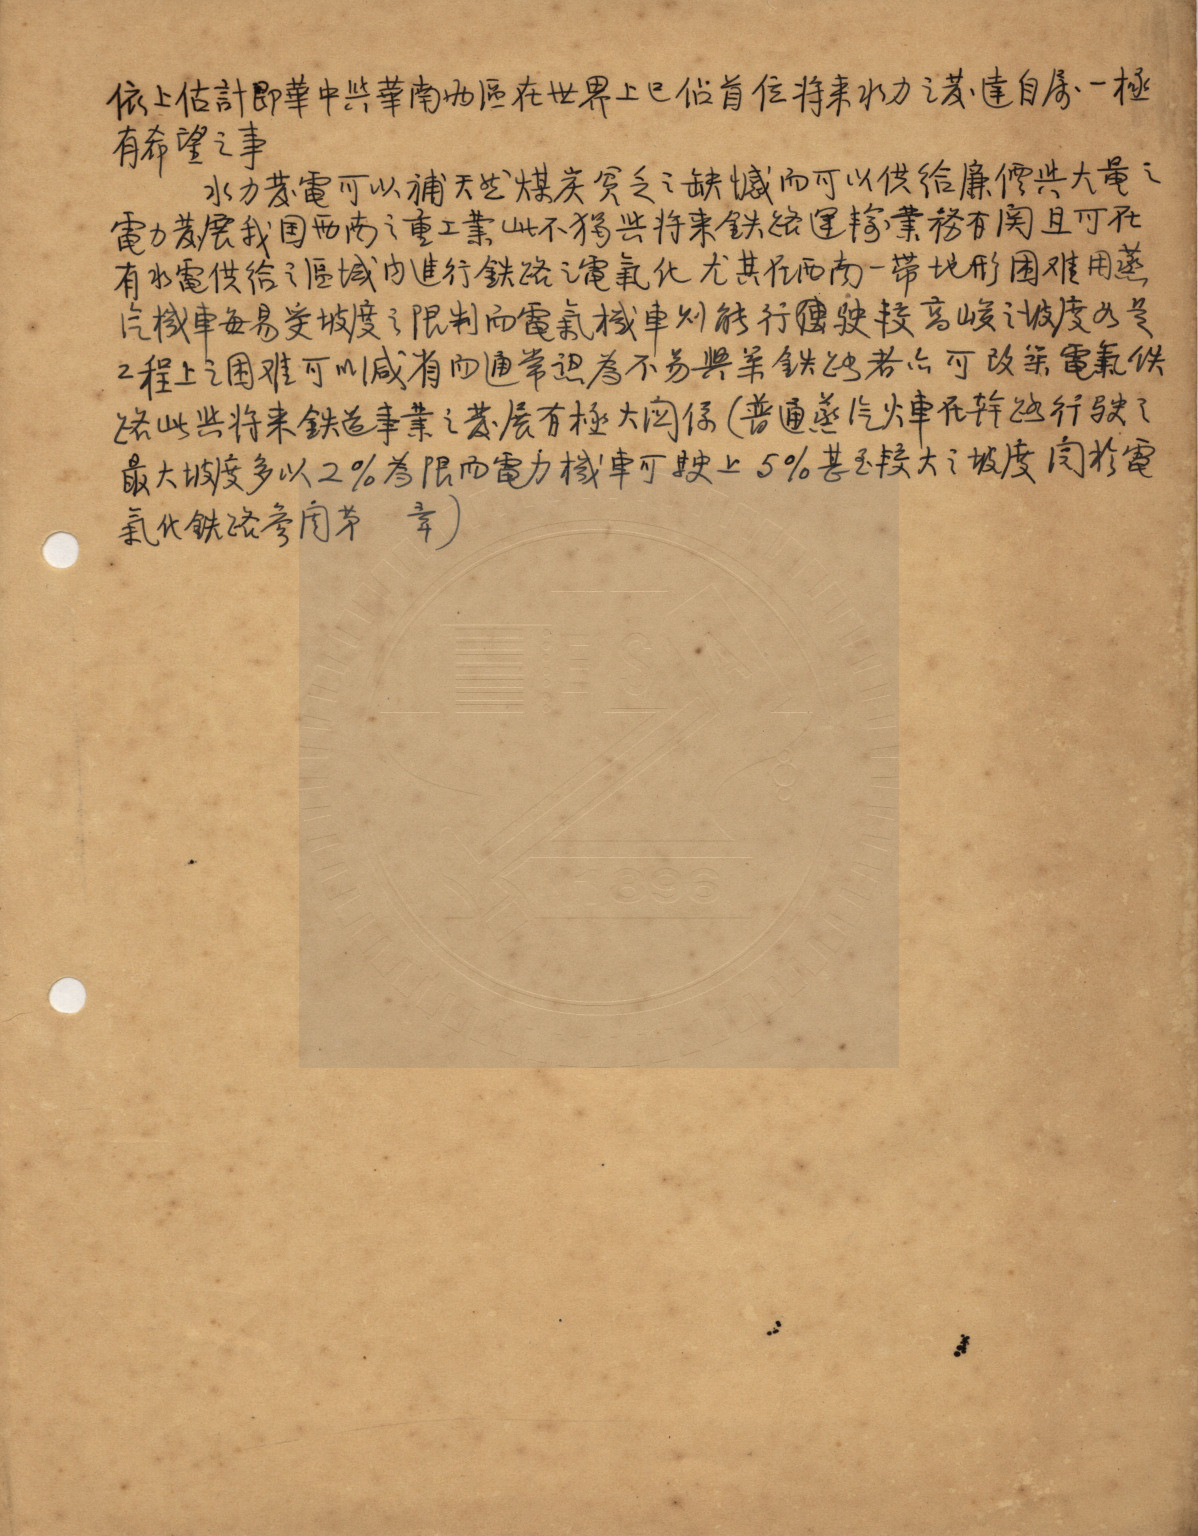 依上估計即華中與華南兩區在世界上已佔首位將来水力之發達自属一極
有希望之事
水力發電可以補天然煤炭貧乏之缺憾而可以供給廉價與大量之
電力發展我国西南之重工業此不獨與將来鉄路運輸業務有関且可在
有水電供給之區域内進行鉄路之電氣化尤其在西南一帶地形困难用蒸
汽機車每易受坡度之限制而電氣機車则能行駛較高峻之坡度如是
工程上之困难可以減省而通常認為不易興築鉄路者亦可改築電氣鉄
路此與將来鉄道事業之發展有極大関係(普通蒸汽火車在幹路行駛之
最大坡度多以2%為限而電力機車可駛上5%甚至較大之坡度関於電
氣化鉄路參閱第 章)
1896